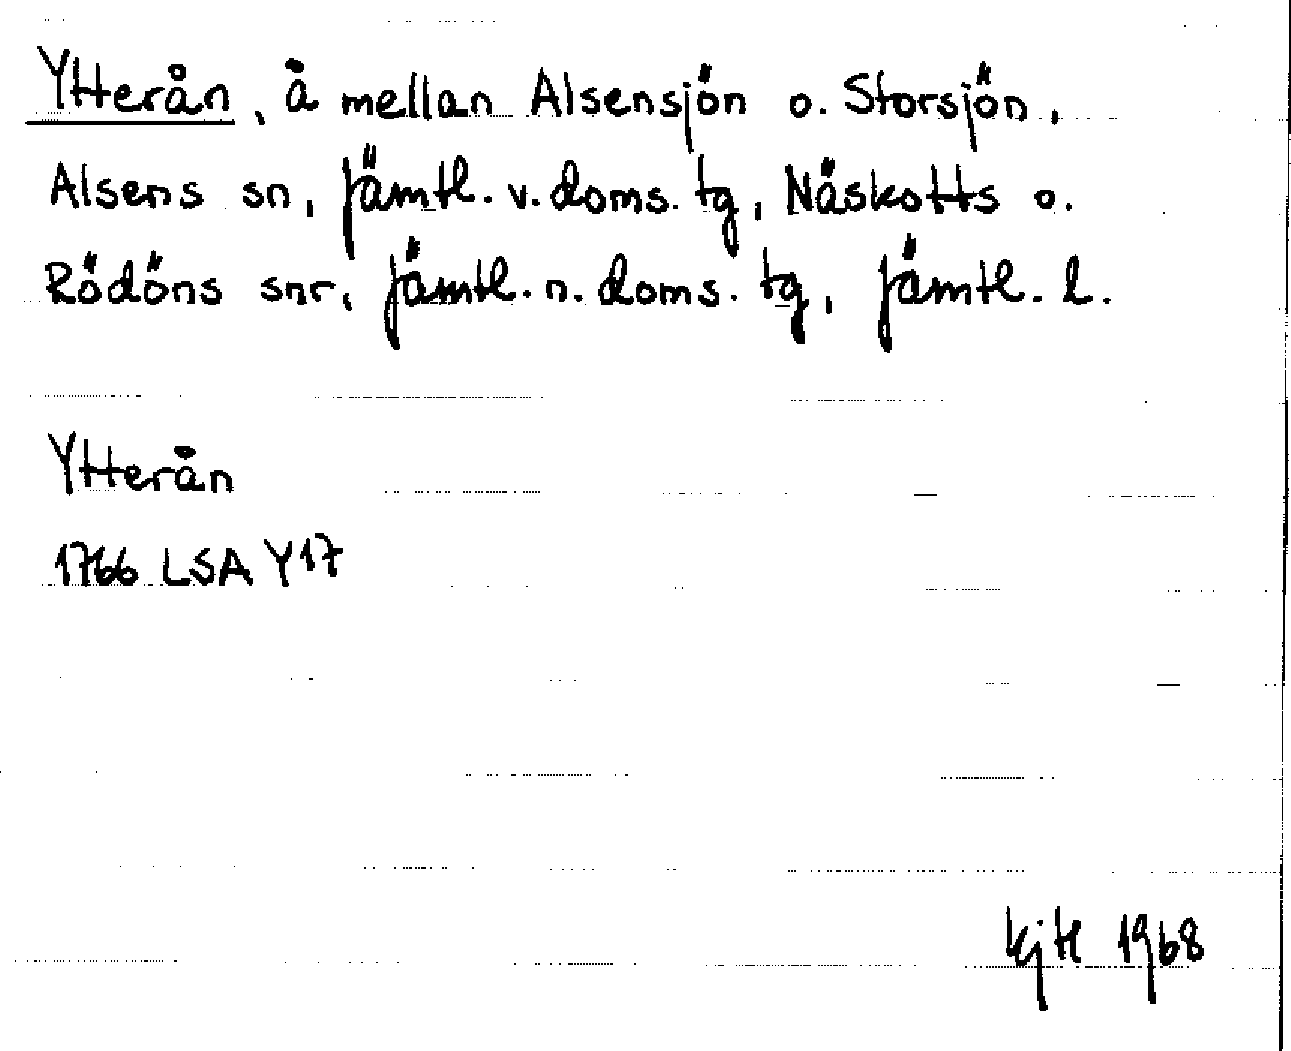 Ytterån, å mellan Alsensjön o. Storsjön,
Alsens sn, Jämtl. v. doms. tg, Näskotts o.
Rödöns snr, Jämtl. n. doms. tg, Jämtl. l.
Ytterån
1766 LSA Y17
1968